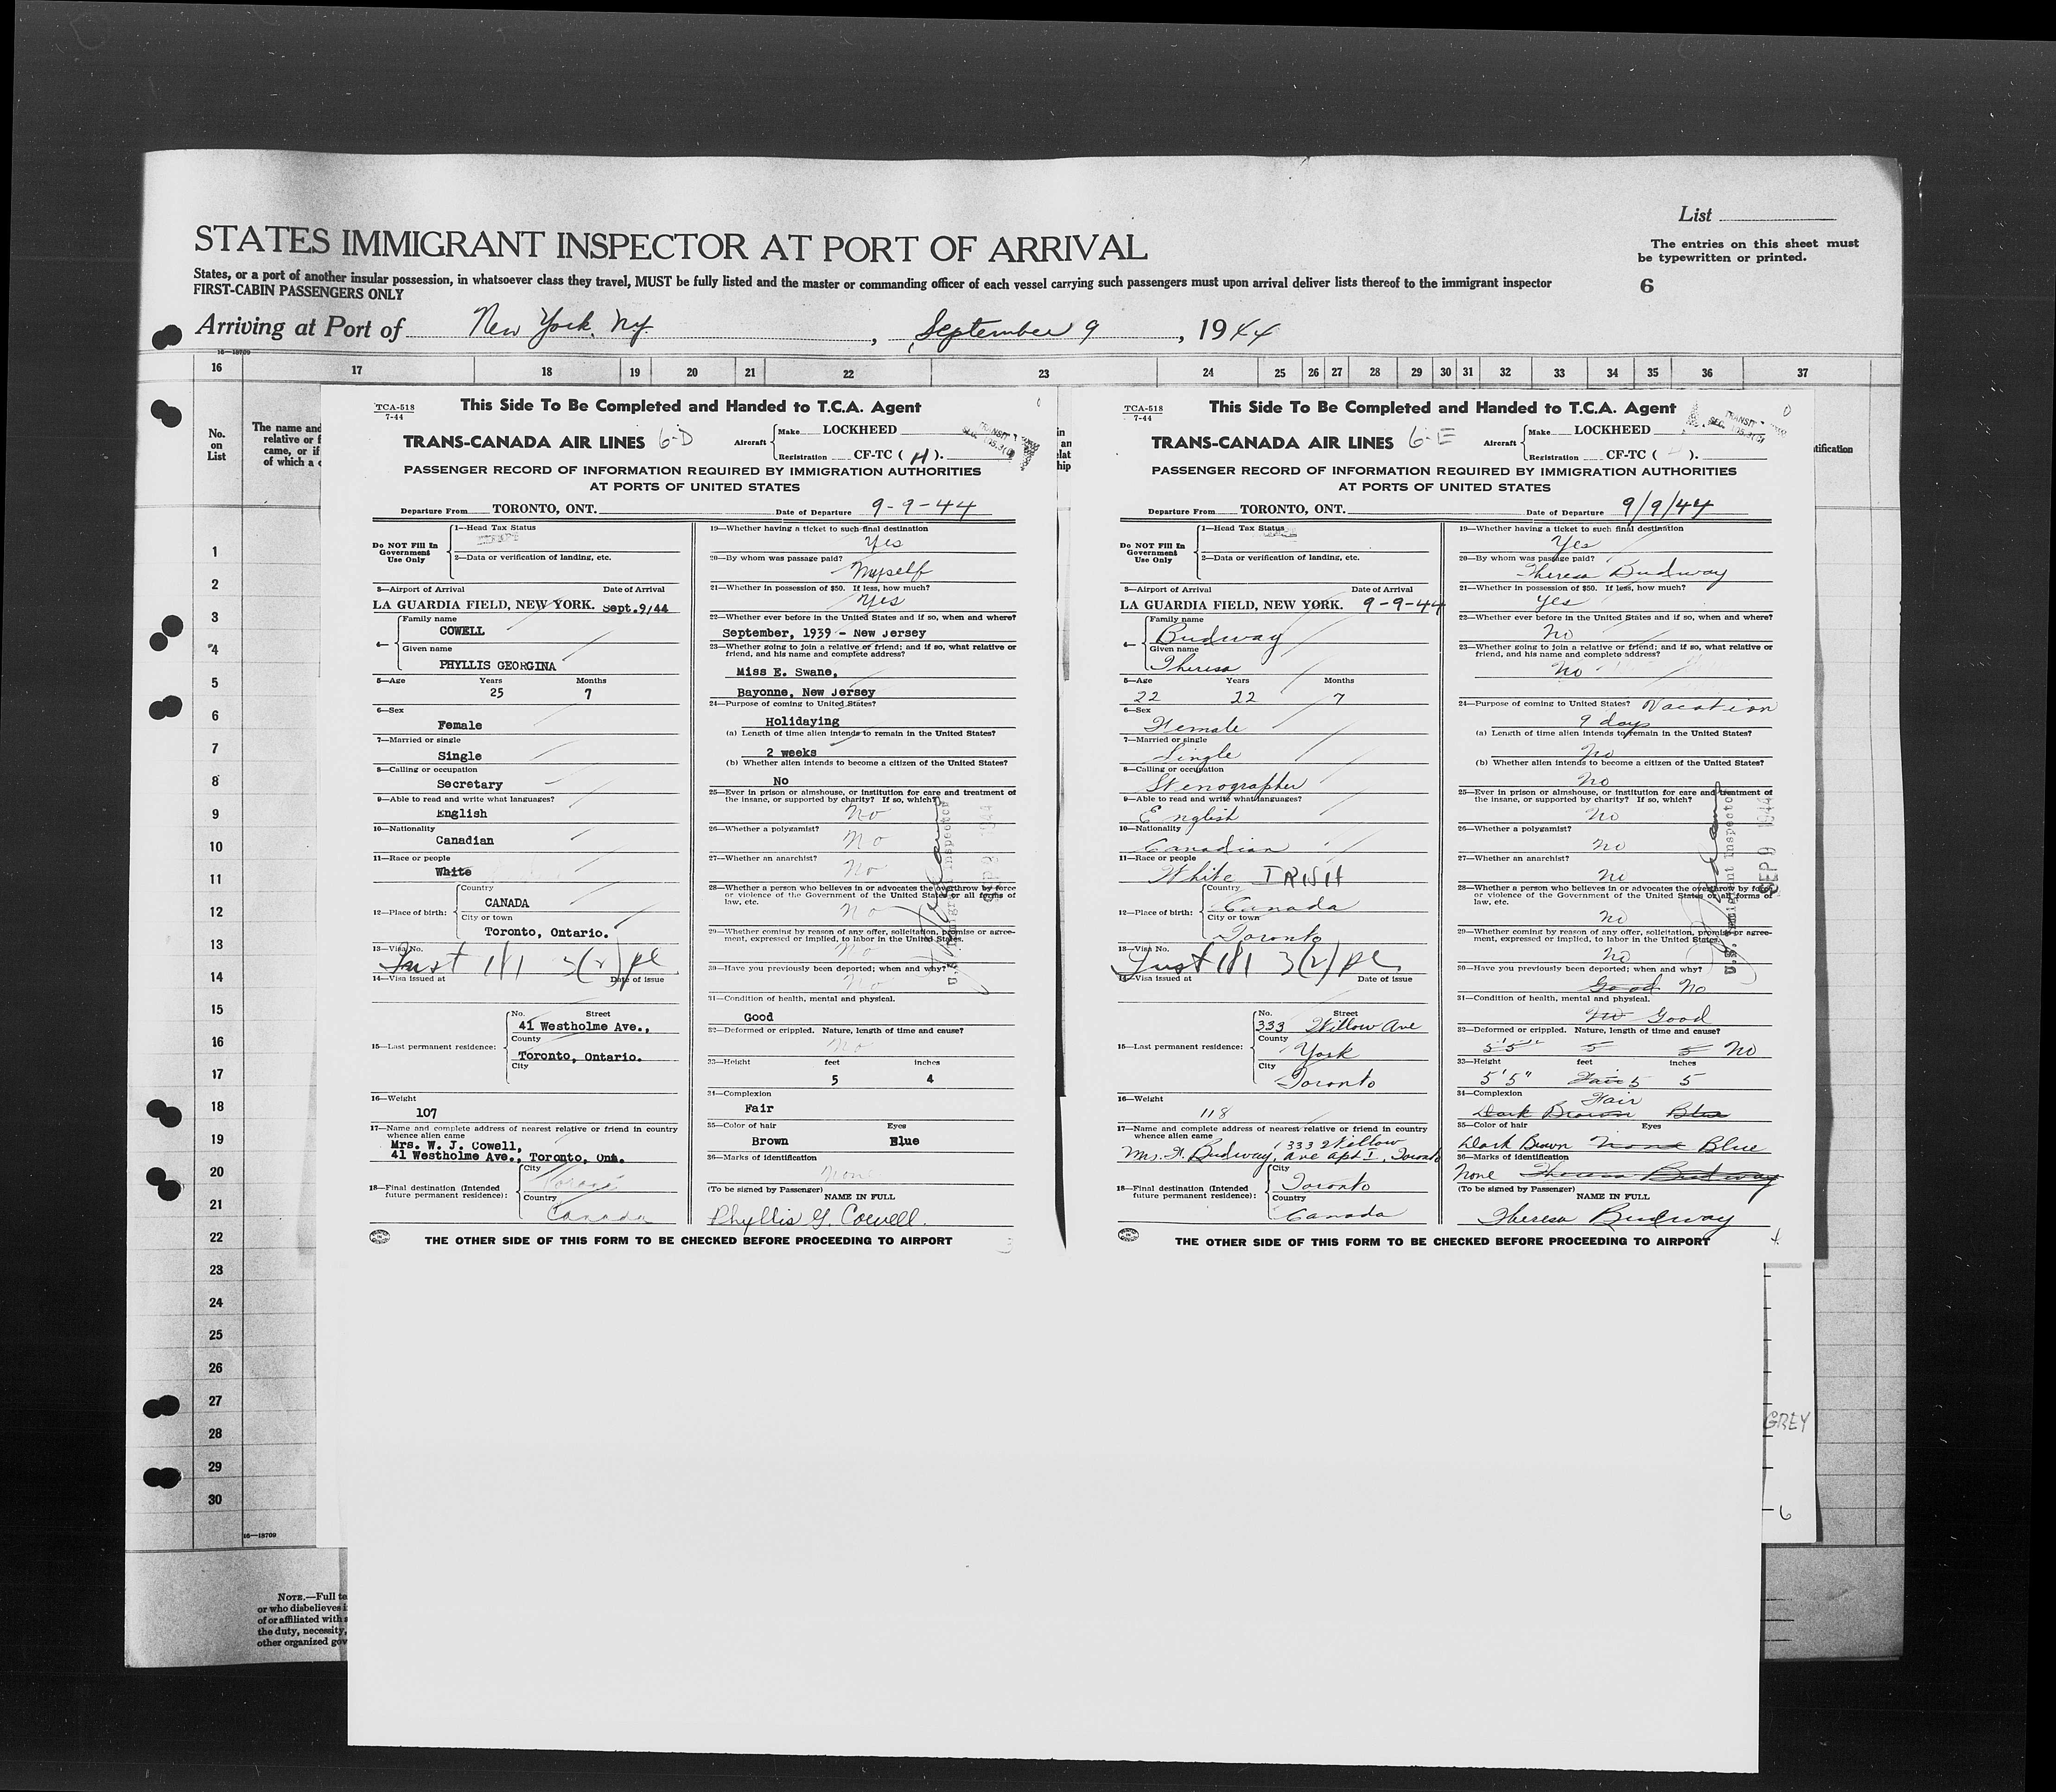 List
STATES IMMIGRANT INSPECTOR AT PORT OF ARRIVAL
The entries on this sheet must
be typewritten or printed.
States, or a port of another insular possession, in whatsoever class they travel, MUST be fully listed and the master or commanding officer of each vessel carrying such passengers must upon arrival deliver lists thereof to the immigrant inspector
FIRST-CABIN PASSENGERS ONLY
6
Arriving at Port of New York, N.Y. , September 9 , 1944
16—18709
16 17 18 19 20 21 22 23 24 25 26 27 28 29 30 31 32 33 34 35 36 37
No.
on
List
The name and
relative or f
came, or if
of which a c
tification
1
2
3
4
5
6
7
8
9
10
11
12
13
14
15
16
17
18
19
20
21
22
23
24
25
26
27
28
29
30
16—18709
NOTE.—Full te
or who disbelieves i
of or affiliated with
the duty, necessity,
other organized gov
TCA-518
7-44
This Side To Be Completed and Handed to T.C.A. Agent
TRANS-CANADA AIR LINES 6-D
Aircraft Make LOCKHEED
Registration CF-TC ( H ).
PASSENGER RECORD OF INFORMATION REQUIRED BY IMMIGRATION AUTHORITIES
AT PORTS OF UNITED STATES
Departure From TORONTO, ONT. Date of Departure 9-9-44
Do NOT Fill In
Government
Use Only
1—Head Tax Status
2—Data or verification of landing, etc.
3—Airport of Arrival Date of Arrival
LA GUARDIA FIELD, NEW YORK. Sept.9/44
4— Family name
COWELL
Given name
PHYLLIS GEORGINA
5—Age Years Months
25 7
6—Sex
Female
7—Married or single
Single
8—Calling or occupation
Secretary
9—Able to read and write what languages?
English
10—Nationality
Canadian
11—Race or people
White
12—Place of birth: Country
CANADA
City or town
Toronto, Ontario.
13—Visa No.
3(2) pl
14—Visa issued at Date of issue
15—Last permanent residence: No. Street
41 Westholme Ave.,
County
Toronto, Ontario.
City
16—Weight
107
17—Name and complete address of nearest relative or friend in country
whence alien came
Mrs. W. J. Cowell,
41 Westholme Ave., Toronto, Ont.
18—Final destination (Intended
future permanent residence): City
Toronto
Country
Canada
19—Whether having a ticket to such final destination
Yes
20—By whom was passage paid?
Myself
21—Whether in possession of $50. If less, how much?
Yes
22—Whether ever before in the United States and if so, when and where?
September, 1939 - New Jersey
23—Whether going to join a relative or friend; and if so, what relative or
friend, and his name and complete address?
Miss E. Swane,
Bayonne, New Jersey
24—Purpose of coming to United States?
Holidaying
(a) Length of time alien intends to remain in the United States?
2 weeks
(b) Whether alien intends to become a citizen of the United States?
No
25—Ever in prison or almshouse, or institution for care and treatment of
the insane, or supported by charity? If so, which?
No
26—Whether a polygamist?
No
27—Whether an anarchist?
No
28—Whether a person who believes in or advocates the overthrow by force
or violence of the Government of the United States or all forms of
law, etc.
No
29—Whether coming by reason of any offer, solicitation, promise or agree-
ment, expressed or implied, to labor in the United States.
No
30—Have you previously been deported; when and why?
No
31—Condition of health, mental and physical.
Good
32—Deformed or crippled. Nature, length of time and cause?
No
33—Height feet inches
5 4
34—Complexion
Fair
35—Color of hair Eyes
Brown Blue
36—Marks of identification
None
(To be signed by Passenger)
NAME IN FULL
Phyllis G. Cowell.
U.S. Immigrant Inspector
THE OTHER SIDE OF THIS FORM TO BE CHECKED BEFORE PROCEEDING TO AIRPORT
TCA-518
7-44
This Side To Be Completed and Handed to T.C.A. Agent
TRANS-CANADA AIR LINES 6-E
Aircraft Make LOCKHEED
Registration CF-TC ( ).
PASSENGER RECORD OF INFORMATION REQUIRED BY IMMIGRATION AUTHORITIES
AT PORTS OF UNITED STATES
Departure From TORONTO, ONT. Date of Departure 9/9/44
Do NOT Fill In
Government
Use Only
1—Head Tax Status
2—Data or verification of landing, etc.
3—Airport of Arrival Date of Arrival
LA GUARDIA FIELD, NEW YORK. 9-9-44
4— Family name
Budway
Given name
Theresa
5—Age Years Months
22 22 7
6—Sex
Female
7—Married or single
Single
8—Calling or occupation
Stenographer
9—Able to read and write what languages?
English
10—Nationality
Canadian
11—Race or people
White IRISH
12—Place of birth: Country
Canada
City or town
Toronto
13—Visa No.
3(2) pl
14—Visa issued at Date of issue
15—Last permanent residence: No. Street
333 Willow Ave
County
York
City
Toronto
16—Weight
118
17—Name and complete address of nearest relative or friend in country
whence alien came 333 Willow
Mrs. F. Budway, Ave Apt 1, Toronto
18—Final destination (Intended
future permanent residence): City
Toronto
Country
Canada
19—Whether having a ticket to such final destination
Yes
20—By whom was passage paid?
Theresa Budway
21—Whether in possession of $50. If less, how much?
Yes
22—Whether ever before in the United States and if so, when and where?
No
23—Whether going to join a relative or friend; and if so, what relative or
friend, and his name and complete address?
No
24—Purpose of coming to United States? Vacation
9 days
(a) Length of time alien intends to remain in the United States?
No
(b) Whether alien intends to become a citizen of the United States?
No
25—Ever in prison or almshouse, or institution for care and treatment of
the insane, or supported by charity? If so, which?
No
26—Whether a polygamist?
No
27—Whether an anarchist?
No
28—Whether a person who believes in or advocates the overthrow by force
or violence of the Government of the United States or all forms of
law, etc.
No
29—Whether coming by reason of any offer, solicitation, promise or agree-
ment, expressed or implied, to labor in the United States.
No
30—Have you previously been deported; when and why?
Good No
31—Condition of health, mental and physical.
No Good
32—Deformed or crippled. Nature, length of time and cause?
5'5" 5 5 No
33—Height feet inches
5'5" Fair 5 5
34—Complexion Fair
Dark Brown Blue
35—Color of hair Eyes
Dark Brown None Blue
36—Marks of identification
None Theresa Budway
(To be signed by Passenger)
NAME IN FULL
Theresa Budway
U.S. Immigrant Inspector
SEP 9 1944
THE OTHER SIDE OF THIS FORM TO BE CHECKED BEFORE PROCEEDING TO AIRPORT
GREY
6